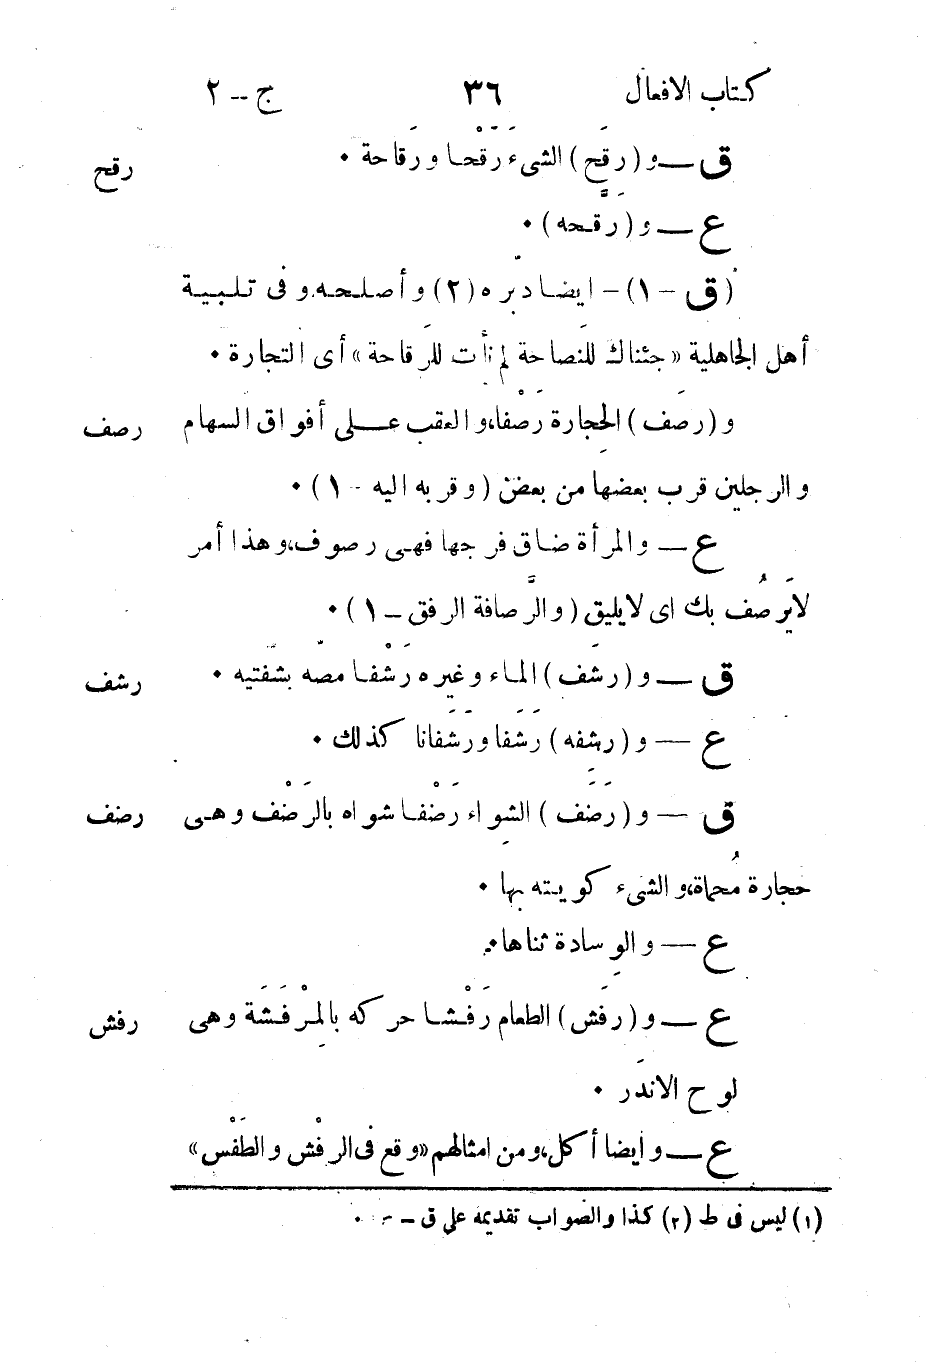 كتاب الافعال ٣٦ ج -- ٢
ق — و (رقَح) الشىء رَقْحا ورَقَاحة ٠ رقح
ع — و (رقَّحه) ٠
(ق - ١) - ايضا دبّره (٢) وأصلحه، وفى تلبية
أهل الجاهلية «جئناك للنَصاحة لم نأت للرَقاحة» أى التجارة ٠
و (رصَف) الحجارة رَصْفا، والعقب على أفواق السهام رصف
والرِجلين قرب بعضها من بعض (وقربه اليه - ١) ٠
ع — والمرأة ضاق فرجها فهى رصوف، وهذا أمر
لا يَرصُف بك اى لايليق (والرَّصافة الرفق - ١) ٠
ق — و (رشَف) الماء وغيره رَشْفا مصّه بشَفَتيه ٠ رشف
ع — و (رشِفه) رَشَفا ورَشَفانا كذلك ٠
ق — و (رَضَف) الشِواء رَضْفا شواه بالرَضْف وهى رضف
حجارة مُحماة، والشىء كويته بها ٠
ع — والوِسادة ثناها ٠
ع — و (رفَش) الطعام رَفْشا حركه بالمِرْفَشَة وهى رفش
لوح الاندَر ٠
ع — وأيضا أكل، ومن امثالهم «وقع فى الرفْش والطَفْس»
(١) ليس فى ط (٢) كذا والصواب تقديمه على ق - ٠